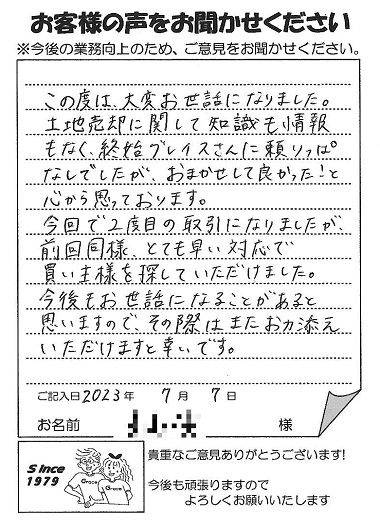 お客様の声をお聞かせください
※今後の業務向上のため、ご意見をお聞かせください。
この度は、大変お世話になりました。
土地売却に関して知識も情報
もなく、終始グレイスさんに頼りっぱ
なしでしたが、おまかせして良かった!と
心から思っております。
今回で2度目の取引になりましたが、
前回同様、とても早い対応で
買い主様を探していただけました。
今後もお世話になることがあると
思いますので、その際はまたお力添え
いただけますと幸いです。
ご記入日2023年 7月 7日
お名前 様
Since
1979
Grace
Grace
貴重なご意見ありがとうございます!
今後も頑張りますので
よろしくお願いいたします